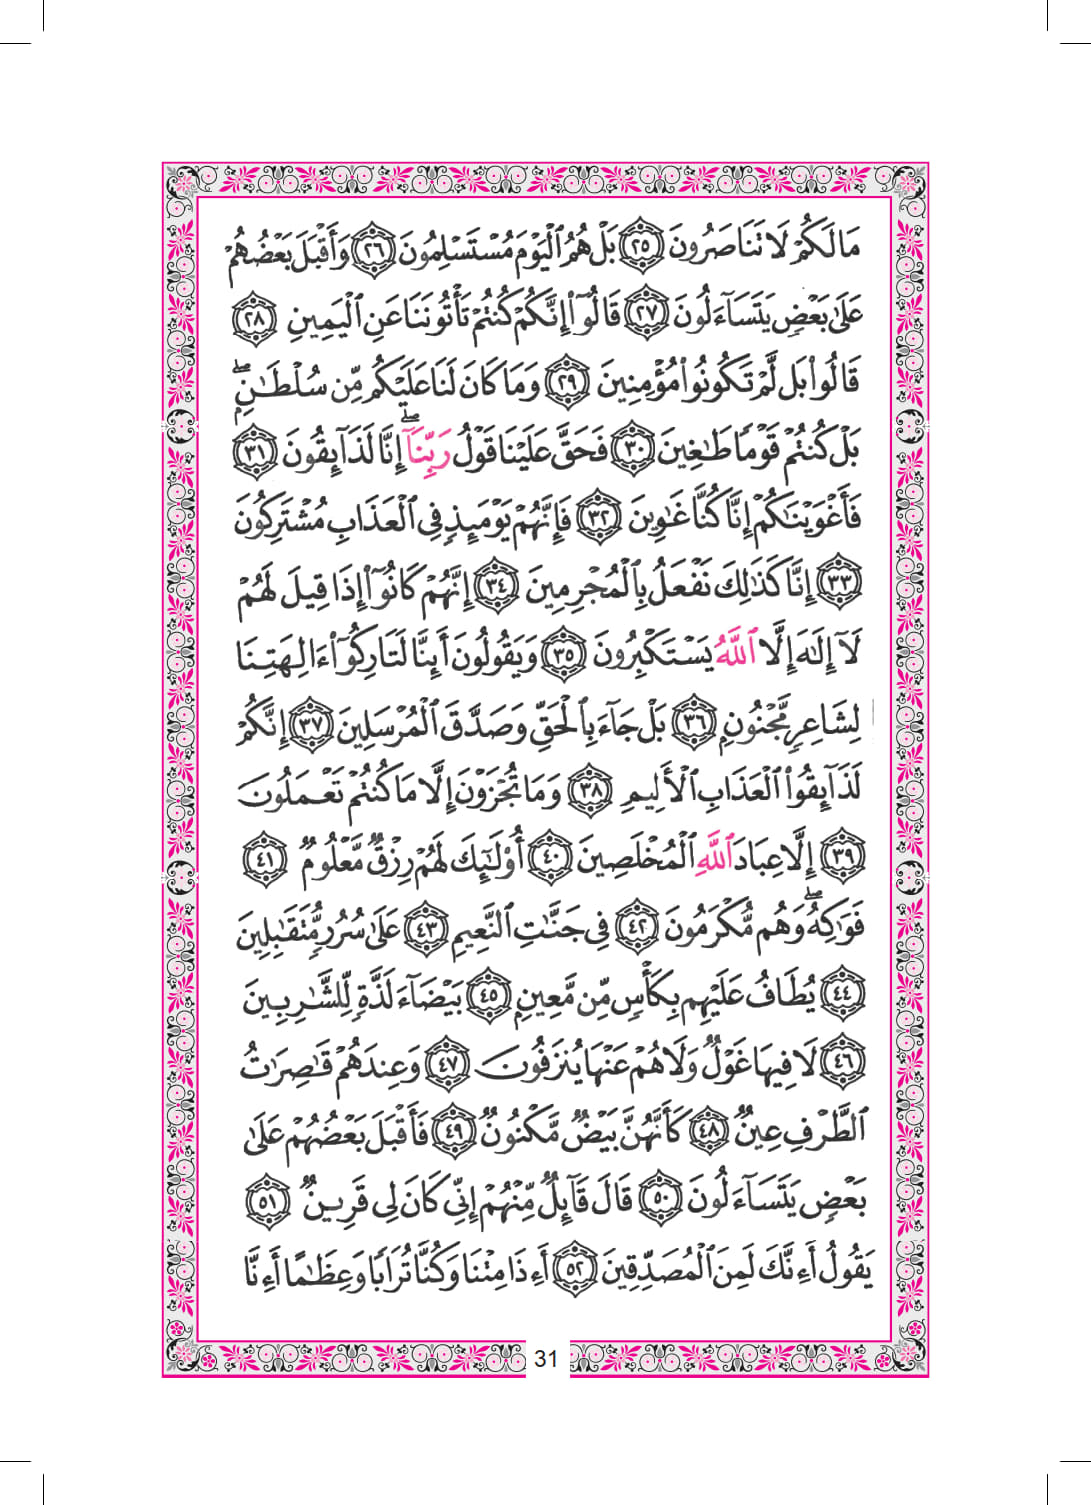 مَا لَكُمْ لَا تَنَاصَرُونَ ٢٥ بَلْ هُمُ ٱلْيَوْمَ مُسْتَسْلِمُونَ ٢٦ وَأَقْبَلَ بَعْضُهُمْ
عَلَىٰ بَعْضٍ يَتَسَآءَلُونَ ٢٧ قَالُوٓا۟ إِنَّكُمْ كُنتُمْ تَأْتُونَنَا عَنِ ٱلْيَمِينِ ٢٨
قَالُوا۟ بَل لَّمْ تَكُونُوا۟ مُؤْمِنِينَ ٢٩ وَمَا كَانَ لَنَا عَلَيْكُم مِّن سُلْطَـٰنٍۭ ۖ
بَلْ كُنتُمْ قَوْمًا طَـٰغِينَ ٣٠ فَحَقَّ عَلَيْنَا قَوْلُ رَبِّنَآ ۖ إِنَّا لَذَآئِقُونَ ٣١
فَأَغْوَيْنَـٰكُمْ إِنَّا كُنَّا غَـٰوِينَ ٣٢ فَإِنَّهُمْ يَوْمَئِذٍ فِى ٱلْعَذَابِ مُشْتَرِكُونَ
٣٣ إِنَّا كَذَٰلِكَ نَفْعَلُ بِٱلْمُجْرِمِينَ ٣٤ إِنَّهُمْ كَانُوٓا۟ إِذَا قِيلَ لَهُمْ
لَآ إِلَـٰهَ إِلَّا ٱللَّهُ يَسْتَكْبِرُونَ ٣٥ وَيَقُولُونَ أَئِنَّا لَتَارِكُوٓا۟ ءَالِهَتِنَا
لِشَاعِرٍ مَّجْنُونٍۭ ٣٦ بَلْ جَآءَ بِٱلْحَقِّ وَصَدَّقَ ٱلْمُرْسَلِينَ ٣٧ إِنَّكُمْ
لَذَآئِقُوا۟ ٱلْعَذَابِ ٱلْأَلِيمِ ٣٨ وَمَا تُجْزَوْنَ إِلَّا مَا كُنتُمْ تَعْمَلُونَ
٣٩ إِلَّا عِبَادَ ٱللَّهِ ٱلْمُخْلَصِينَ ٤٠ أُو۟لَـٰٓئِكَ لَهُمْ رِزْقٌ مَّعْلُومٌ ٤١
فَوَٰكِهُ ۖ وَهُم مُّكْرَمُونَ ٤٢ فِى جَنَّـٰتِ ٱلنَّعِيمِ ٤٣ عَلَىٰ سُرُرٍ مُّتَقَـٰبِلِينَ
٤٤ يُطَافُ عَلَيْهِم بِكَأْسٍ مِّن مَّعِينٍۭ ٤٥ بَيْضَآءَ لَذَّةٍ لِّلشَّـٰرِبِينَ
٤٦ لَا فِيهَا غَوْلٌ وَلَا هُمْ عَنْهَا يُنزَفُونَ ٤٧ وَعِندَهُمْ قَـٰصِرَٰتُ
ٱلطَّرْفِ عِينٌ ٤٨ كَأَنَّهُنَّ بَيْضٌ مَّكْنُونٌ ٤٩ فَأَقْبَلَ بَعْضُهُمْ عَلَىٰ
بَعْضٍ يَتَسَآءَلُونَ ٥٠ قَالَ قَآئِلٌ مِّنْهُمْ إِنِّى كَانَ لِى قَرِينٌ ٥١
يَقُولُ أَءِنَّكَ لَمِنَ ٱلْمُصَدِّقِينَ ٥٢ أَءِذَا مِتْنَا وَكُنَّا تُرَابًا وَعِظَـٰمًا أَءِنَّا
31